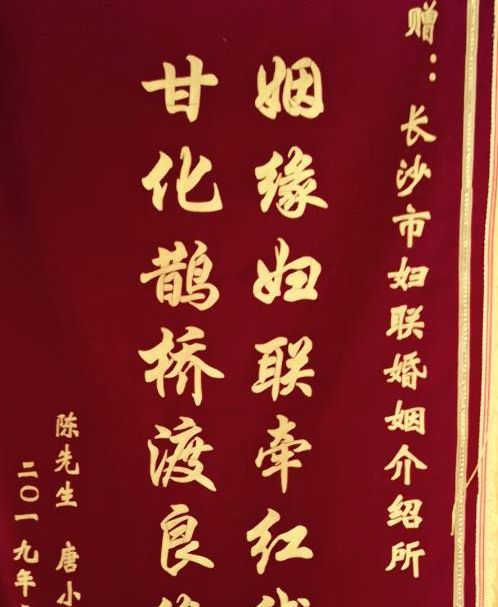 赠：长沙市妇联婚姻介绍所
姻缘妇联牵红线
甘化鹊桥渡良缘
陈先生 唐小
二〇一九年